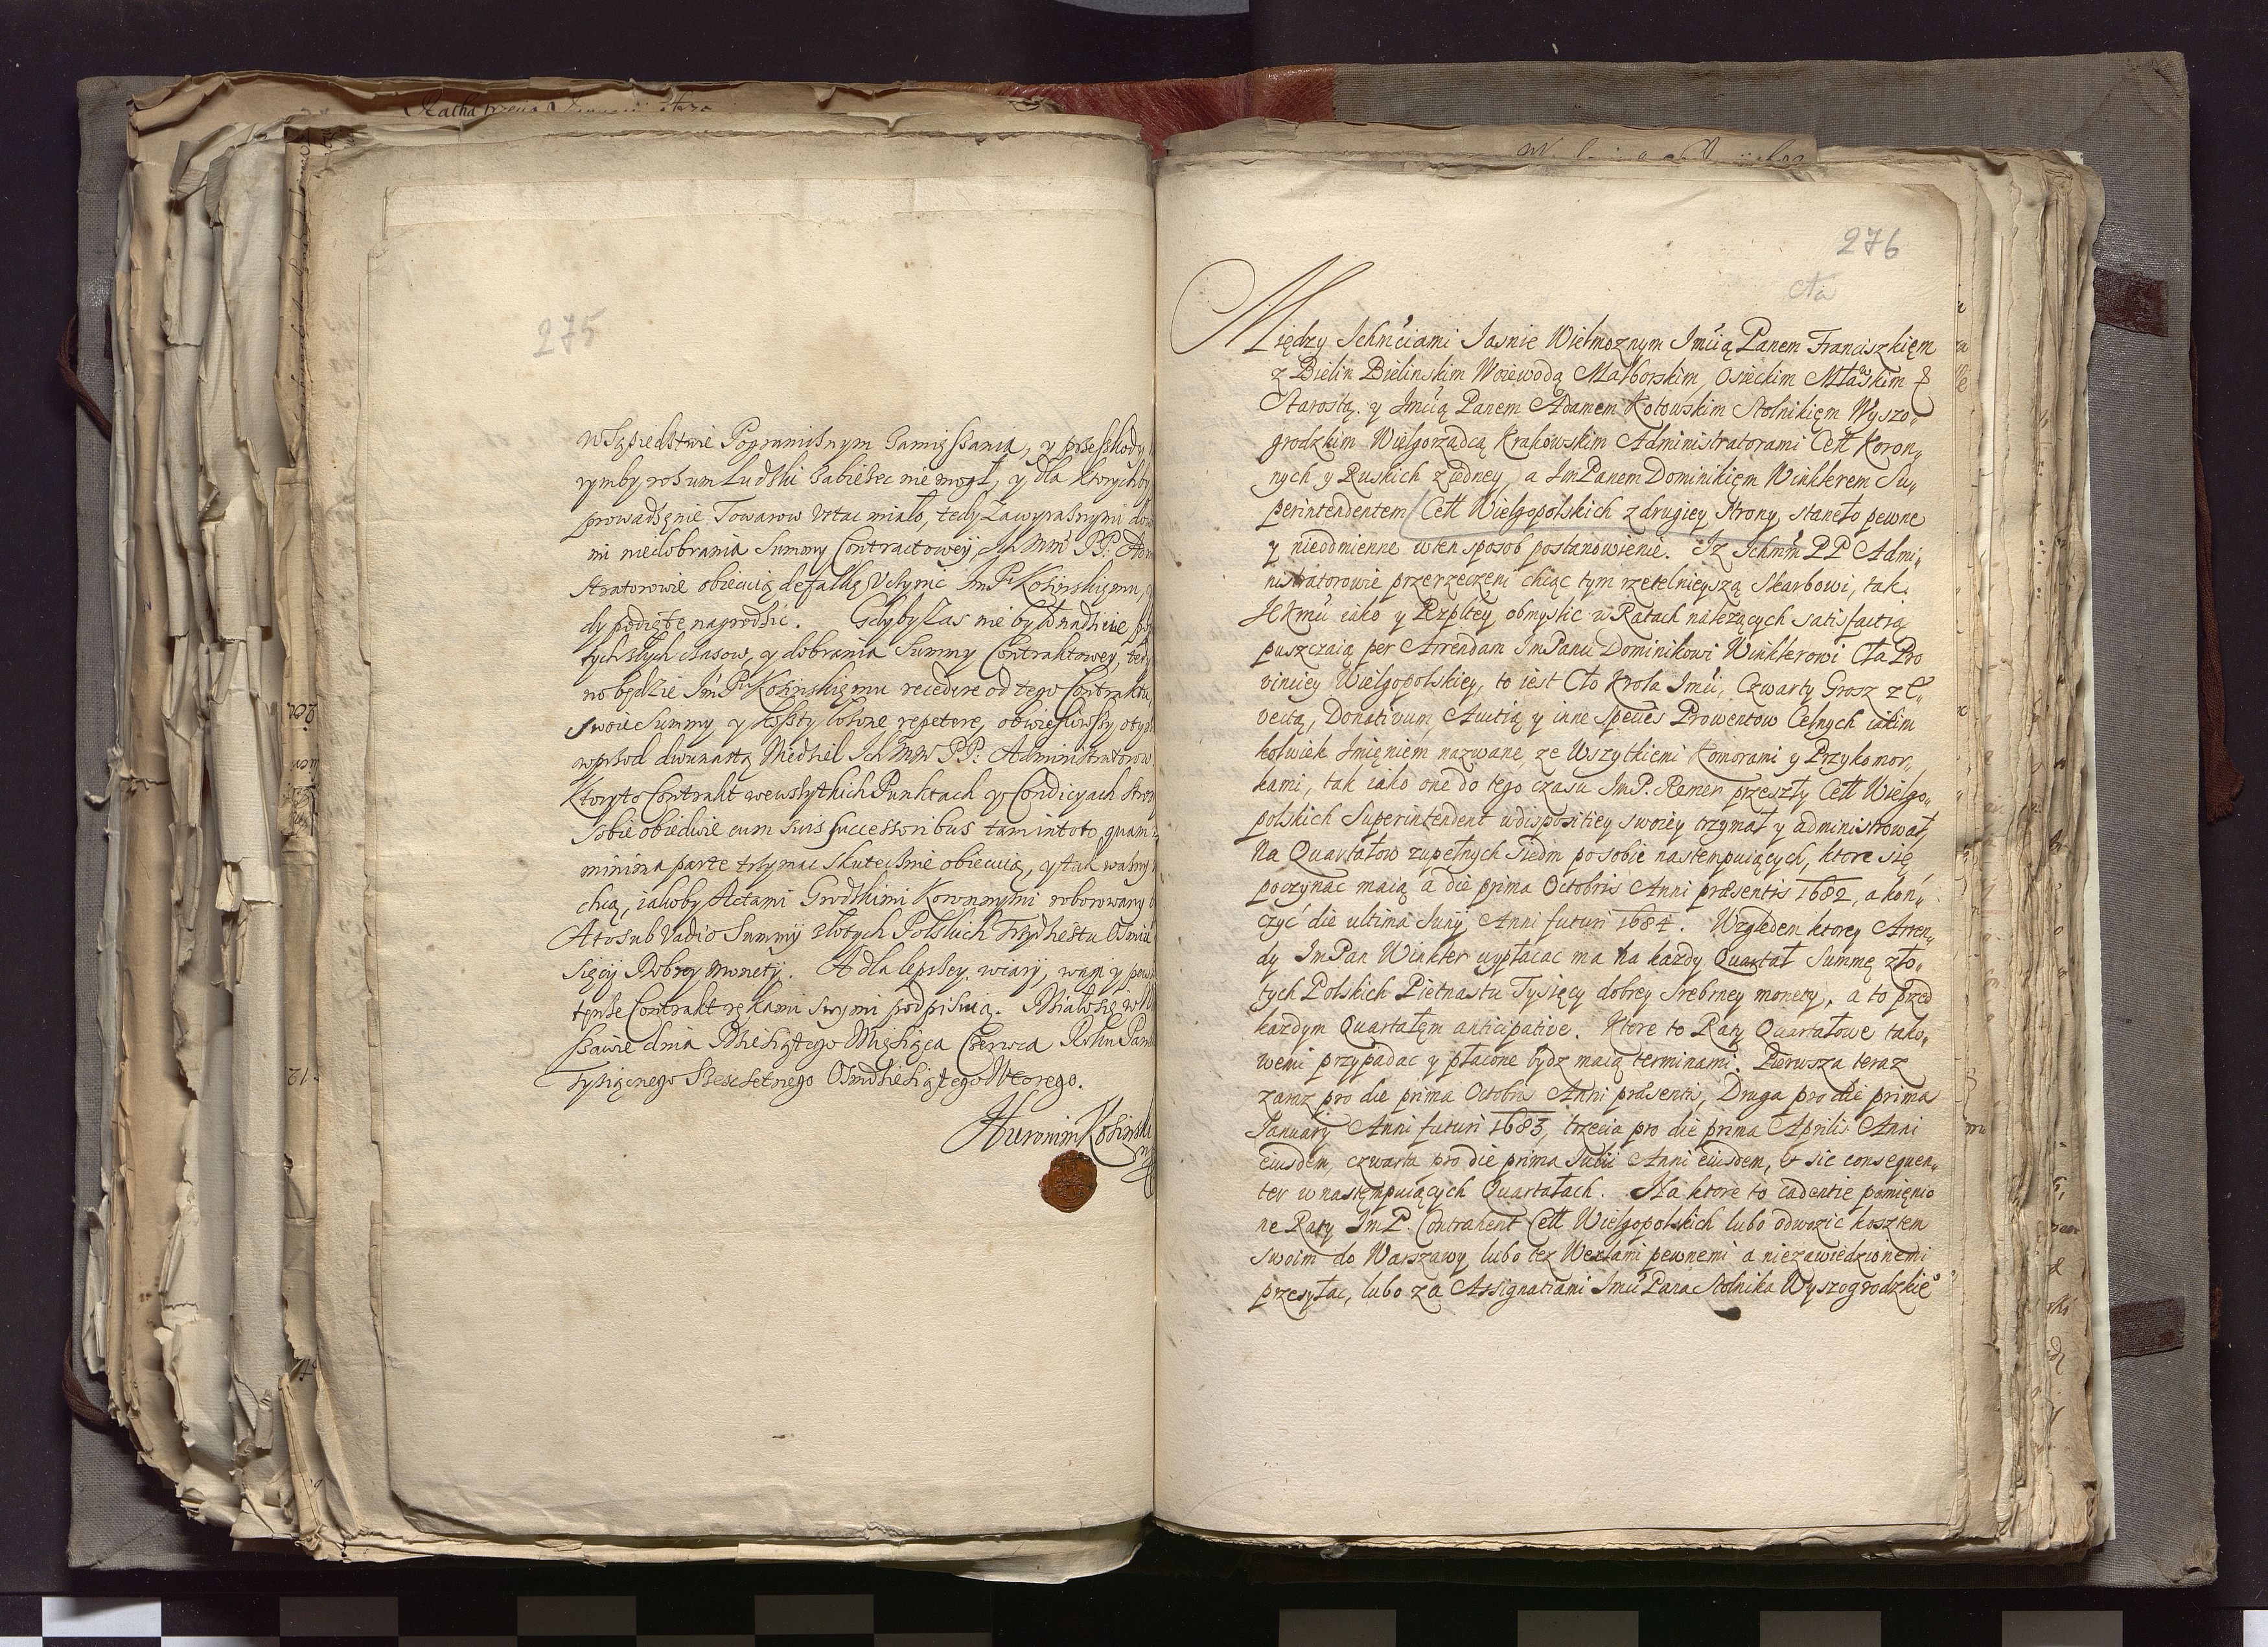 275
w Sąsiedztwie Pogranicznym Zamięszania, y przeszkody,
rymby rozum Ludzki zabieżec nie mogł, y dla ktorychby
prowadzęnie Towarow ustac miało, tedy za wyraźnymi
mi niedobrania Summy Contractowey, Ich Mm PP. Adm
stratorowie obiecuią defalkę uczynic Im Pu Kosinskiemu,
dy podięte nagrodzic. Gdyby zas nie było nadzieie
tychzłych czasow, y dobrania Summy Contraktowey, tedy
no będzie Im Pu Kosinskiemu recedere od tego Contraktu,
swoie Summy y koszty łożone repetere, obwiesciwszy o tym
wprzod dwunastą Niedziel Ich Mm PP. Administratorow.
Ktory to Contrakt we wszytkich Punktach y Condicyach Stron
sobie obiedwie cum suis successoribus tam in toto, quam
minima parte trzymac skutecznie obiecuią, y tak ważny
chcą, iakoby Actami Grodzkimi Koronnymi roborowany
A to sub Vadio Summy złotych Polskich Trzydziestu Osmiu
sięcy Dobrey Monety. A dla lepszey wiary, wagi y pew
tenże Contrakt rękami swymi podpisuią. Działo się w W
szawie dnia Dziesiątego Miesiąca Czerwca Roku Pan
Tysiącnego Szescsetnego Osmdziesiątego Wtorego.
Hieronim Kosinski
276
Cła
Między Ichmciami Jasnie Wielmoznym Jmcią Panem Franciszkięm
z Bielin Bielinskim Woiewodą Malborskim, Osieckim Mławskim &
Starostą. y Jmcią Panem Adamem Kotowskim Stolnikięm Wyszo„
grodzkim Wielgorządcą Krakowskim Administratorami Cełł Koron„
nych y Ruskich z iedney, a Im Panem Dominikięm Winklerem Su„
perintendentem Cełł Wielgopolskich z drugiey Strony, staneło pewne
y nieodmienne w ten sposob postanowienie. Iz Ichmm PP Admi„
nistratorowie przerzeczeni chcąc tym rzetelnieyszą Skarbowi, tak
JKMci iako y Rzpltey, obmyslic w Ratach nalezących satisfactią
puszczaią per Arrendam Im Panu Dominikowi Winklerowi Cła Pro
vinciey Wielgopolskiey, to iest Cło Krola Jmci, Czwarty Grosz z E„
vectą, Donativum, Auctią y inne Species Prowentow Celnych iakim
kolwiek Imięniem nazwane, ze Wszytkiemi Komorami y Przykomor„
kami, tak iako one do tego czasu Im P. Ramer przeszły Cełł Wielgo„
polskich Superintendent w dispositiey swoiey trzymał y administrował,
Na Quartałow zupełnych Siedm po sobie nastempuiących, ktore się
poczynac maią a die prima Octobris Anni præsentis 1682, a kon„
czyć die ultima Junij Anni futuri 1684. Względem ktorey Arren„
dy Im Pan Winkler wypłacac ma na kazdy Quartał Summę zło„
tych Polskich Piętnastu Tysięcy dobrey srebrney monety, a to przed
kazdym Quartałęm anticipative. Ktore to Raty Quartałowe tako„
wemi przypadac y płacone bydz maią terminami. Pierwsza teraz
zaraz pro die prima Octobris Anni præsentis, Druga pro die prima
January Anni futuri 1683, trzecia pro die prima Aprilis Anni
eiusdem, czwarta pro die prima Julii Anni eiusdem, & sic consequen„
ter w nastempuiących Quartałach. Na ktore to cadentie pomięnio
ne Raty Im P. Contrahent Cełł Wielgopolskich lubo odwozic kosztem
swoim do Warszawy, lubo tez Wexlami pewnemi a niezawiedzionemi
przesyłac, lubo za Assignatiami Jmci Pana Stolnika Wyszogrodzkie°